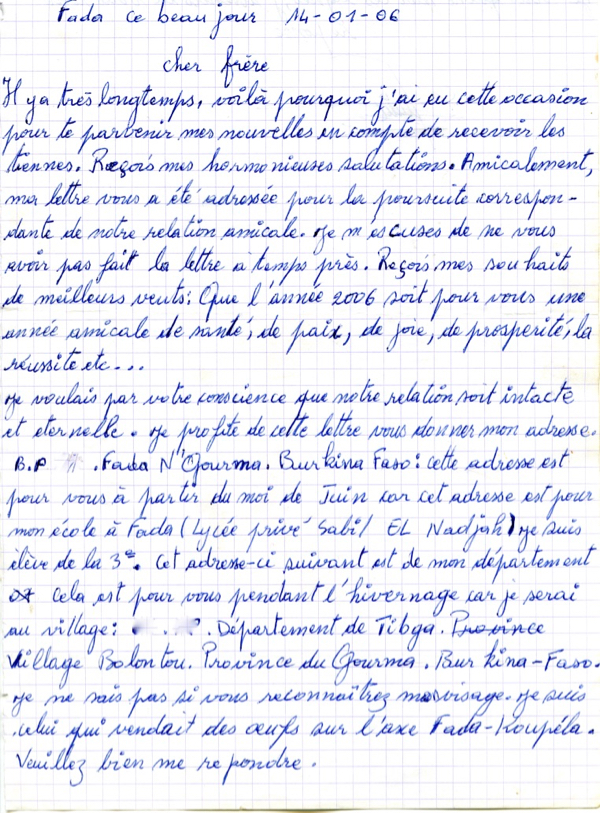 Fada ce beau jour 14-01-06
cher frère
Il ya très longtemps, voilà pourquoi j'ai eu cette occasion
pour te parvenir mes nouvelles en compte de recevoir les
tiennes. Reçois mes harmonieuses salutations. Amicalement,
ma lettre vous a été adressée pour la poursuite correspon-
dante de notre relation amicale. Je m'escuses de ne vous
avoir pas fait la lettre à temps près. Reçois mes souhaits
de meilleurs vents: Que l'année 2006 soit pour vous une
année amicale de santé, de paix, de joie, de prosperité, la
réussite etc...
Je voulais par votre conscience que notre relation soit intacte
et eternelle. Je profite de cette lettre vous donner mon adresse.
B.P . Fada N'Gourma. Burkina Faso: cette adresse est
pour vous à partir du moi de Juin car cet adresse est pour
mon école à Fada (Lycée privé Sabil EL Nadjah) je suis
élève de la 3e. Cet adresse-ci suivant est de mon département
cela est pour vous pendant l'hivernage car je serai
au village: . Département de Tibga. Province
Village Bolontou. Province du Gourma. Burkina-Faso.
Je ne sais pas si vous reconnaîtrez mon visage. Je suis
celui qui vendait des œufs sur l'axe Fada-Koupéla.
Veuillez bien me repondre.